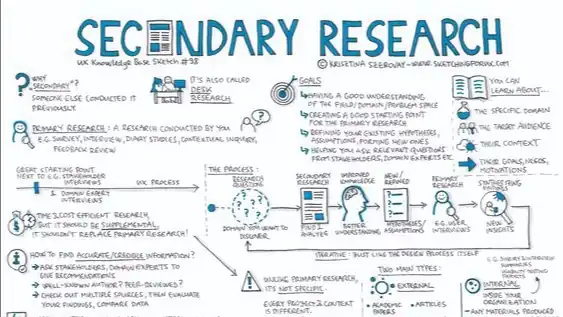 SECONDARY RESEARCH
UX Knowledge Base Sketch #98
© KRISZTINA SZEROVAY - WWW.SKETCHINGFORUX.COM
WHY "SECONDARY"?
SOMEONE ELSE CONDUCTED IT
PREVIOUSLY.
IT'S ALSO CALLED
DESK
RESEARCH
PRIMARY RESEARCH: A RESEARCH CONDUCTED BY YOU
E.G. SURVEY, INTERVIEW, DIARY STUDIES, CONTEXTUAL INQUIRY,
FEEDBACK REVIEW
GOALS
HAVING A GOOD UNDERSTANDING
OF THE FIELD/DOMAIN/PROBLEM SPACE
CREATING A GOOD STARTING POINT
FOR THE PRIMARY RESEARCH
REFINING YOUR EXISTING HYPOTHESES,
ASSUMPTIONS, FORMING NEW ONES
HELPING YOU ASK RELEVANT QUESTIONS
FROM STAKEHOLDERS, DOMAIN EXPERTS ETC.
YOU CAN
LEARN ABOUT...
THE SPECIFIC DOMAIN
THE TARGET AUDIENCE
THEIR CONTEXT
THEIR GOALS, NEEDS,
MOTIVATIONS
GREAT STARTING POINT
NEXT TO E.G. STAKEHOLDER
INTERVIEWS
& DOMAIN EXPERT
INTERVIEWS
UX PROCESS
THE PROCESS:
RESEARCH
QUESTIONS
DOMAIN YOU WANT TO
DISCOVER
SECONDARY
RESEARCH
FIND &
ANALYZE
IMPROVED KNOWLEDGE
BETTER
UNDERSTANDING
NEW/
REFINED
HYPOTHESES/
ASSUMPTIONS
PRIMARY
RESEARCH
E.G. USER
INTERVIEWS
SYNTHESIZING
FACTORS
NEW
INSIGHTS
ITERATIVE: JUST LIKE THE DESIGN PROCESS ITSELF
TIME & COST EFFICIENT RESEARCH,
BUT IT SHOULD BE SUPPLEMENTAL,
IT SHOULDN'T REPLACE PRIMARY RESEARCH!
HOW TO FIND ACCURATE/CREDIBLE INFORMATION?
ASK STAKEHOLDERS, DOMAIN EXPERTS TO
GIVE RECOMMENDATIONS
WELL-KNOWN AUTHOR? PEER-REVIEWED?
CHECK OUT MULTIPLE SOURCES, THEN EVALUATE
YOUR FINDINGS, COMPARE DATA
UNLIKE PRIMARY RESEARCH,
IT'S NOT SPECIFIC.
EVERY PROJECT & CONTEXT
IS DIFFERENT.
TWO MAIN TYPES:
EXTERNAL
• ACADEMIC
PAPERS
• ARTICLES
INTERNAL
INSIDE YOUR
ORGANIZATION
- ANY MATERIALS PRODUCED